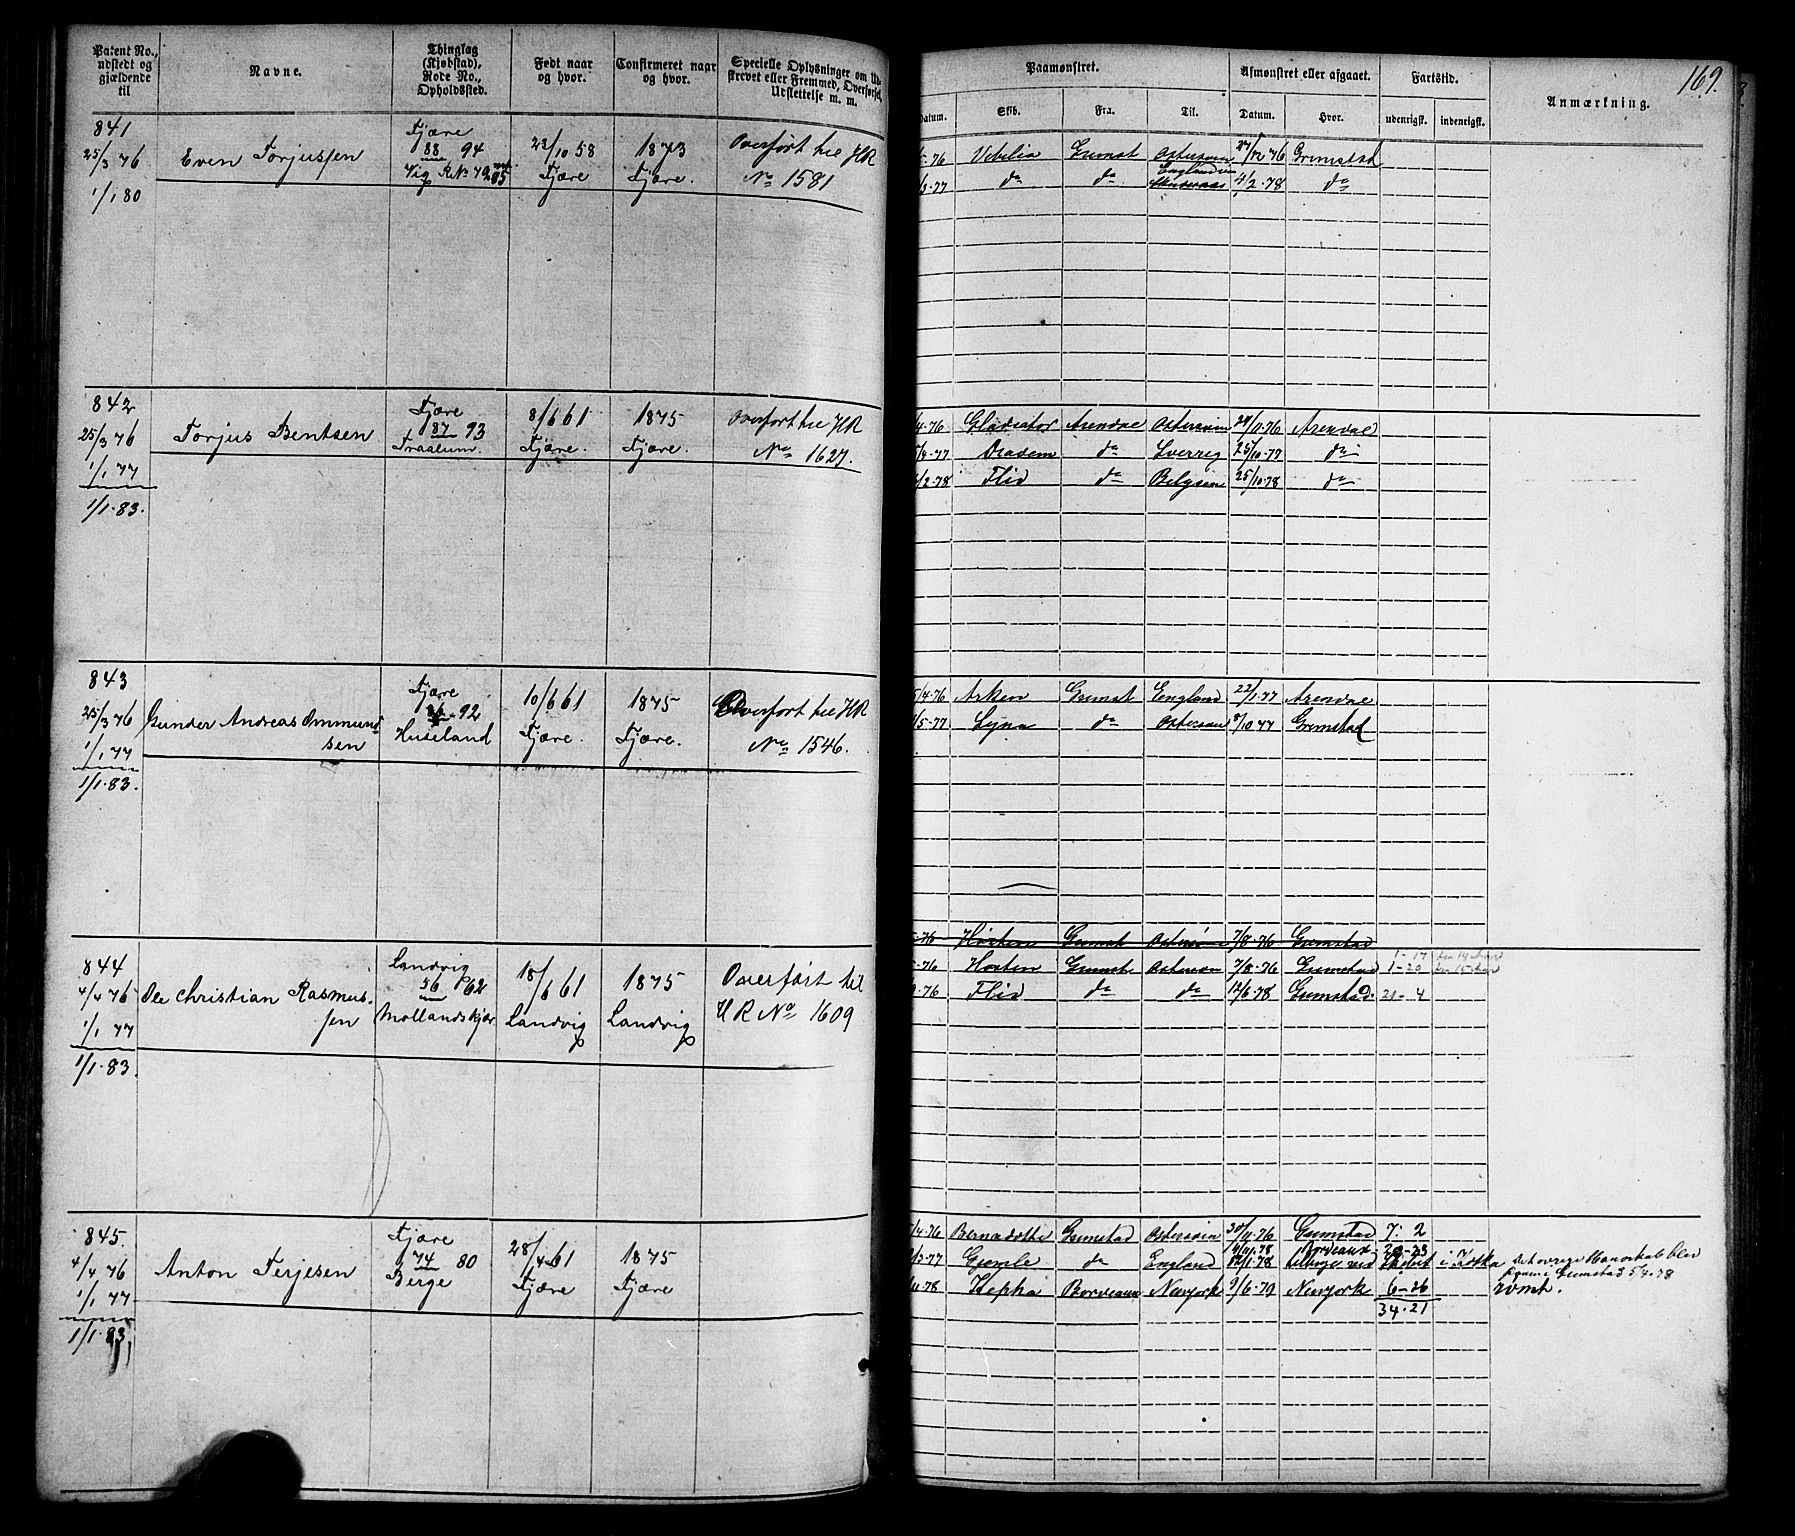 Patent No., udstedt og gjældende til
Navne.
Thinglag (Kjøbstad), Rode No., Opholdssted.
Født naar og hvor.
Confirmeret naar og hvor.
Specielle Oplysninger om Ud-
skrevet eller Fremmed, Overførsel,
Udslettelse m. m.
Paamønstret.
Afmønstret eller afgaaet.
Fartstid.
Anmærkning.
169.
Datum.
Skib.
Fra.
Til.
Datum.
Hvor.
udenrigsk.
indenrigsk.
841
25/3 76
1/1 80
Even Torjussen
Fjære
88 94
Vig
23/10 58
Fjære
1873
Fjære.
Overført til HR
No 1581
Vebelia Grimst Østersøen 27/12 76 Grimstad
do do England 4/2.78 do
842
25/3 76
1/1 77
1/1.83.
Torjus Bentsen
Fjære
87 93
Traalum.
8/6 61
Fjære.
1875
Fjære.
Overført til HR
No 1627.
4.76 Gladiator Arendal Østersøen 24/11.76 Arendal
4.77 Drasem do Sverrig 25/10.77 do
/2.78 Flid do Belgien 25/10.78 do
843
25/3 76
1/1 77
1/1.83.
Gunder Andreas Ommund-
sen
Fjære
86-92
Huseland
10/6 61
Fjære.
1875
Fjære.
Overført til HR
No 1546.
5/4.76 Arken Grimst England 22/1.77 Arendal
/5.77 Syna do Østersøen 3/10 77 Grimstad
76 Horten Grimst Østersøen 7/8.76 Grimstad
844
4/4 76
1/1 77
1/1.83.
Ole Christian Rasmus-
sen
Landvig
56 62
Mollandskjær
18/6 61
Landvig
1875
Landvig
Overført til
HR No 1609
1-17
.76 Horten Grimst Østersøen 7/8.76 Grimstad 1-20
.76 Flid do do 12/6.78 Grimstad. 21-4
845.
4/4 76
1/1 77
1/1.83.
Anton Terjesen
Fjære
74 80
Berge
28/4 61
Fjære
1875
Fjære
/4.76 Bernadotte Grimstad Østersøen 30/11.76 Grimstad 7: 2
/3.77 Gjemle do England Bordeaux
.78 Hepha Bordeaux Newyork 9/6.79 Newyork 6-26
34.21
Grimstad 5 4.78